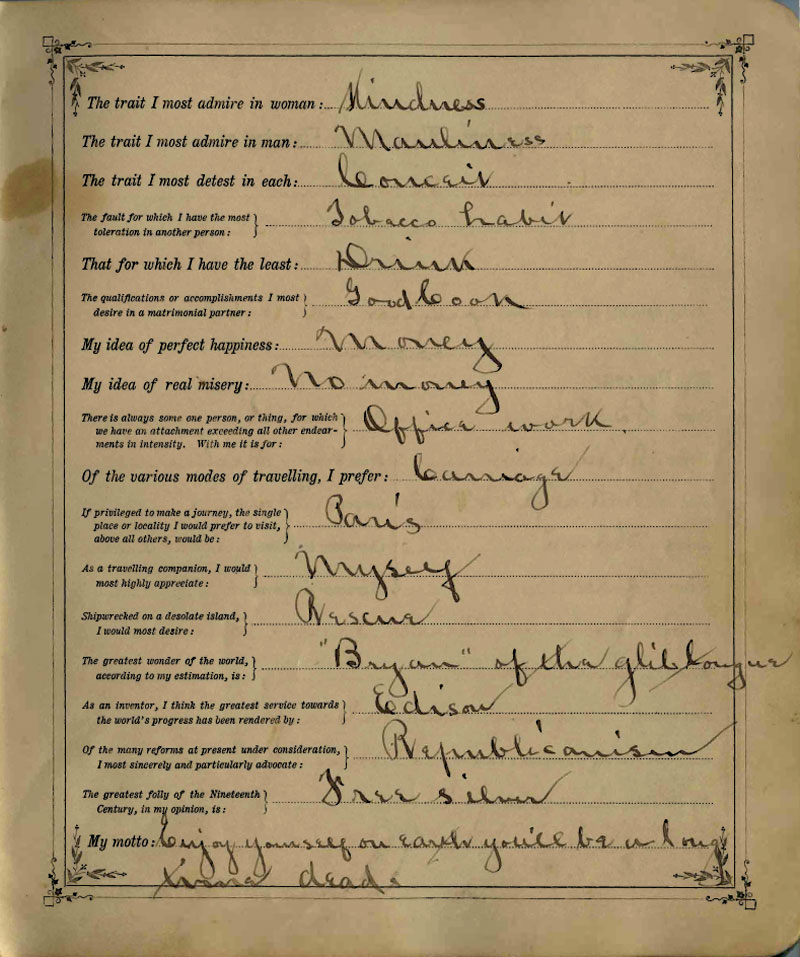 The trait I most admire in woman: Kindness
The trait I most admire in man: Manliness
The trait I most detest in each: Conceit
The fault for which I have the most
toleration in another person: Tobacco habit
That for which I have the least: Drink
The qualifications or accomplishments I most
desire in a matrimonial partner: Good Cook
My idea of perfect happiness: Money
My idea of real misery: No money
There is always some one person, or thing, for which
we have an attachment exceeding all other endear-
ments in intensity. With me it is for: Office work.
Of the various modes of travelling, I prefer: Carriage
If privileged to make a journey, the single
place or locality I would prefer to visit,
above all others, would be: Paris
As a travelling companion, I would
most highly appreciate: Myself
Shipwrecked on a desolate island,
I would most desire: Rescue
The greatest wonder of the world,
according to my estimation, is: "Bryan" of the glib tongue
As an inventor, I think the greatest service towards
the world's progress has been rendered by: Edison
Of the many reforms at present under consideration,
I most sincerely and particularly advocate: Republicanism
The greatest folly of the Nineteenth
Century, in my opinion, is: Free silver
My motto: Enjoy yourself on earth you'll be a long
time dead.